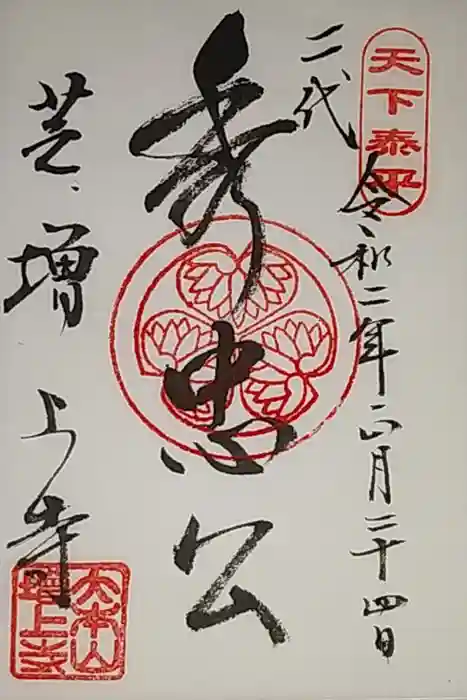 天下泰平
令和二年正月二十四日
二代
秀忠公
芝、増上寺
大本山
増上寺